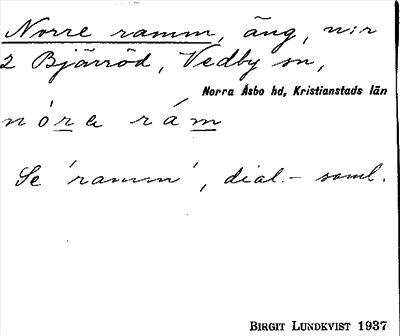 Norre ramm, äng, n:r
2 Bjärröd, Vedby sn,
Norra Åsbo hd, Kristianstads län
nóre rám
Se 'ramm', dial.- saml.
BIRGIT LUNDKVIST 1937